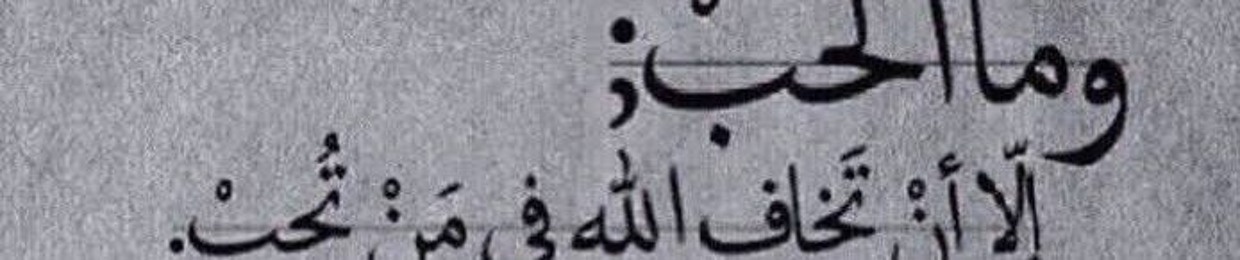 وما الحبْ؛
إلّا أنْ تَخاف الله في مَنْ تُحبْ.